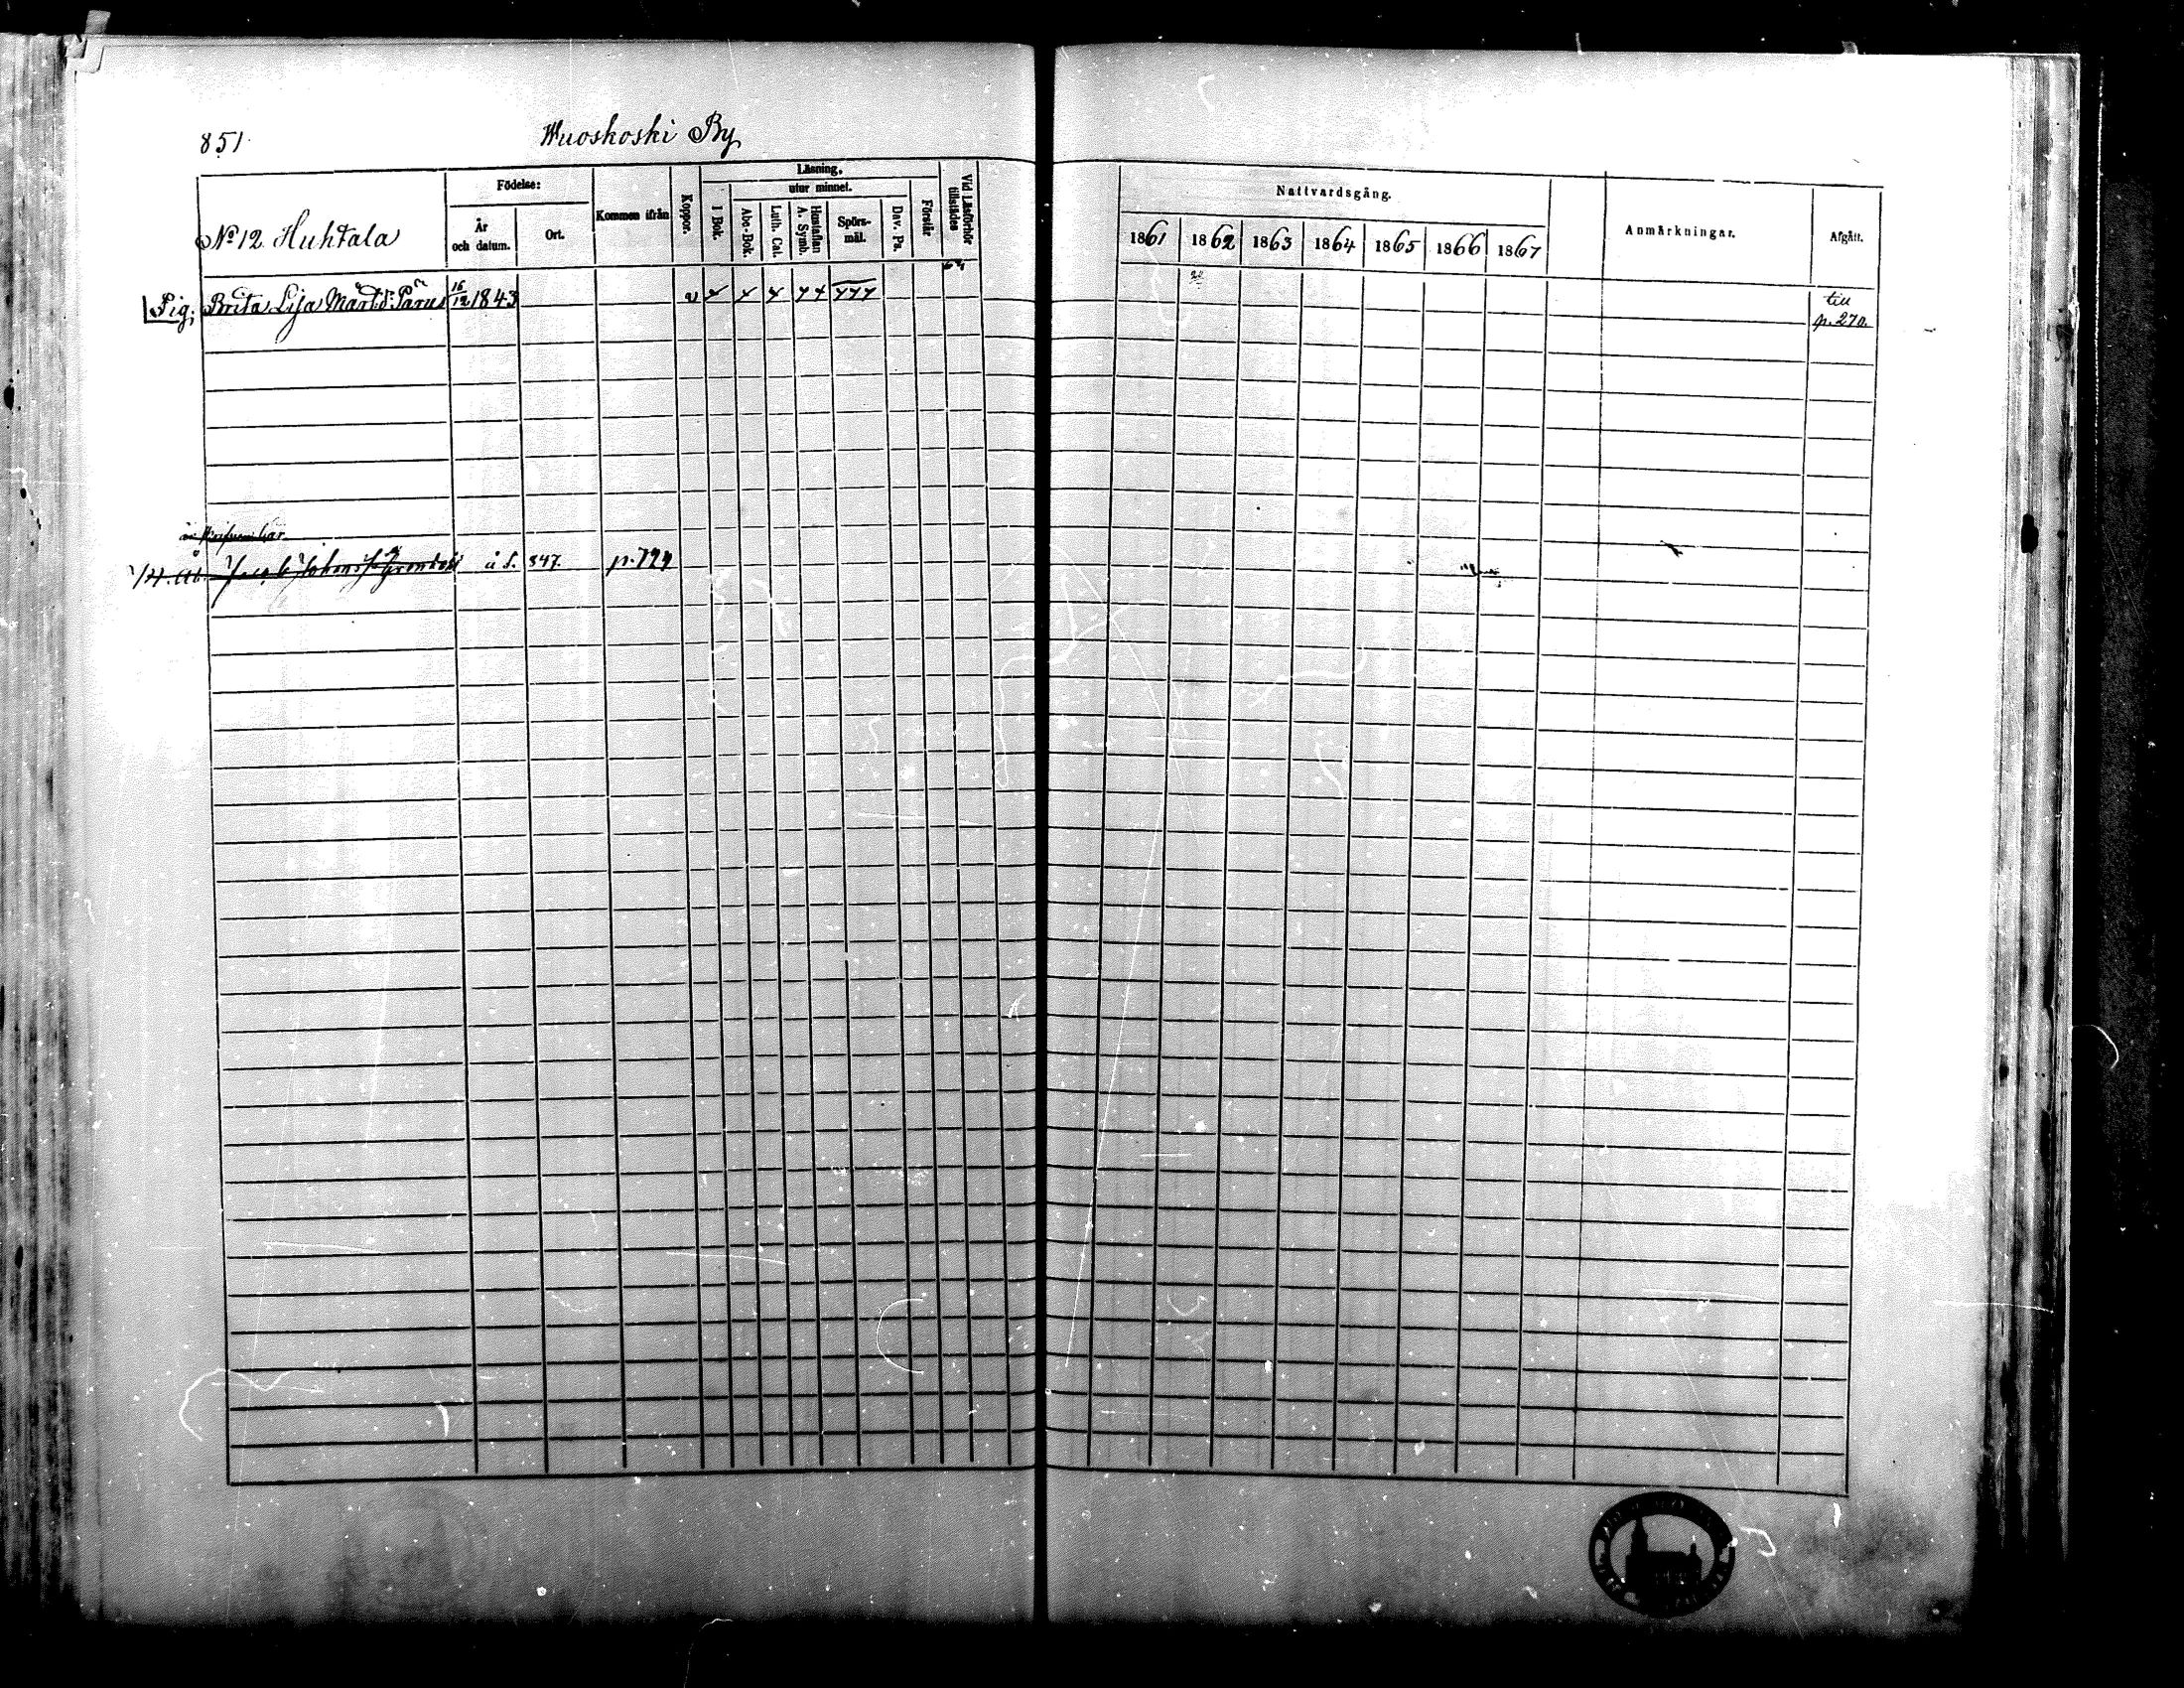 851.
Wuoskoski By
Födelse:
Läsning,
utur minnet.
Nº 12 Huhtala
År och datum.
Ort.
Kommen ifrån
Koppor.
I Bok.
Abc-Bok.
Luth. Cat.
Hustaflan A. Symb.
Spörs-mål.
Dav. Ps.
Förstår
Vid Läsförhör tillstädes
Nattvardsgång.
1861 1862 1863 1864 1865 1866 1867
Anmärkningar.
Afgått.
Pig. Brita Lisa 16/12 1843 v
till
p. 270.
här
Jacob å s. 847. p. 724